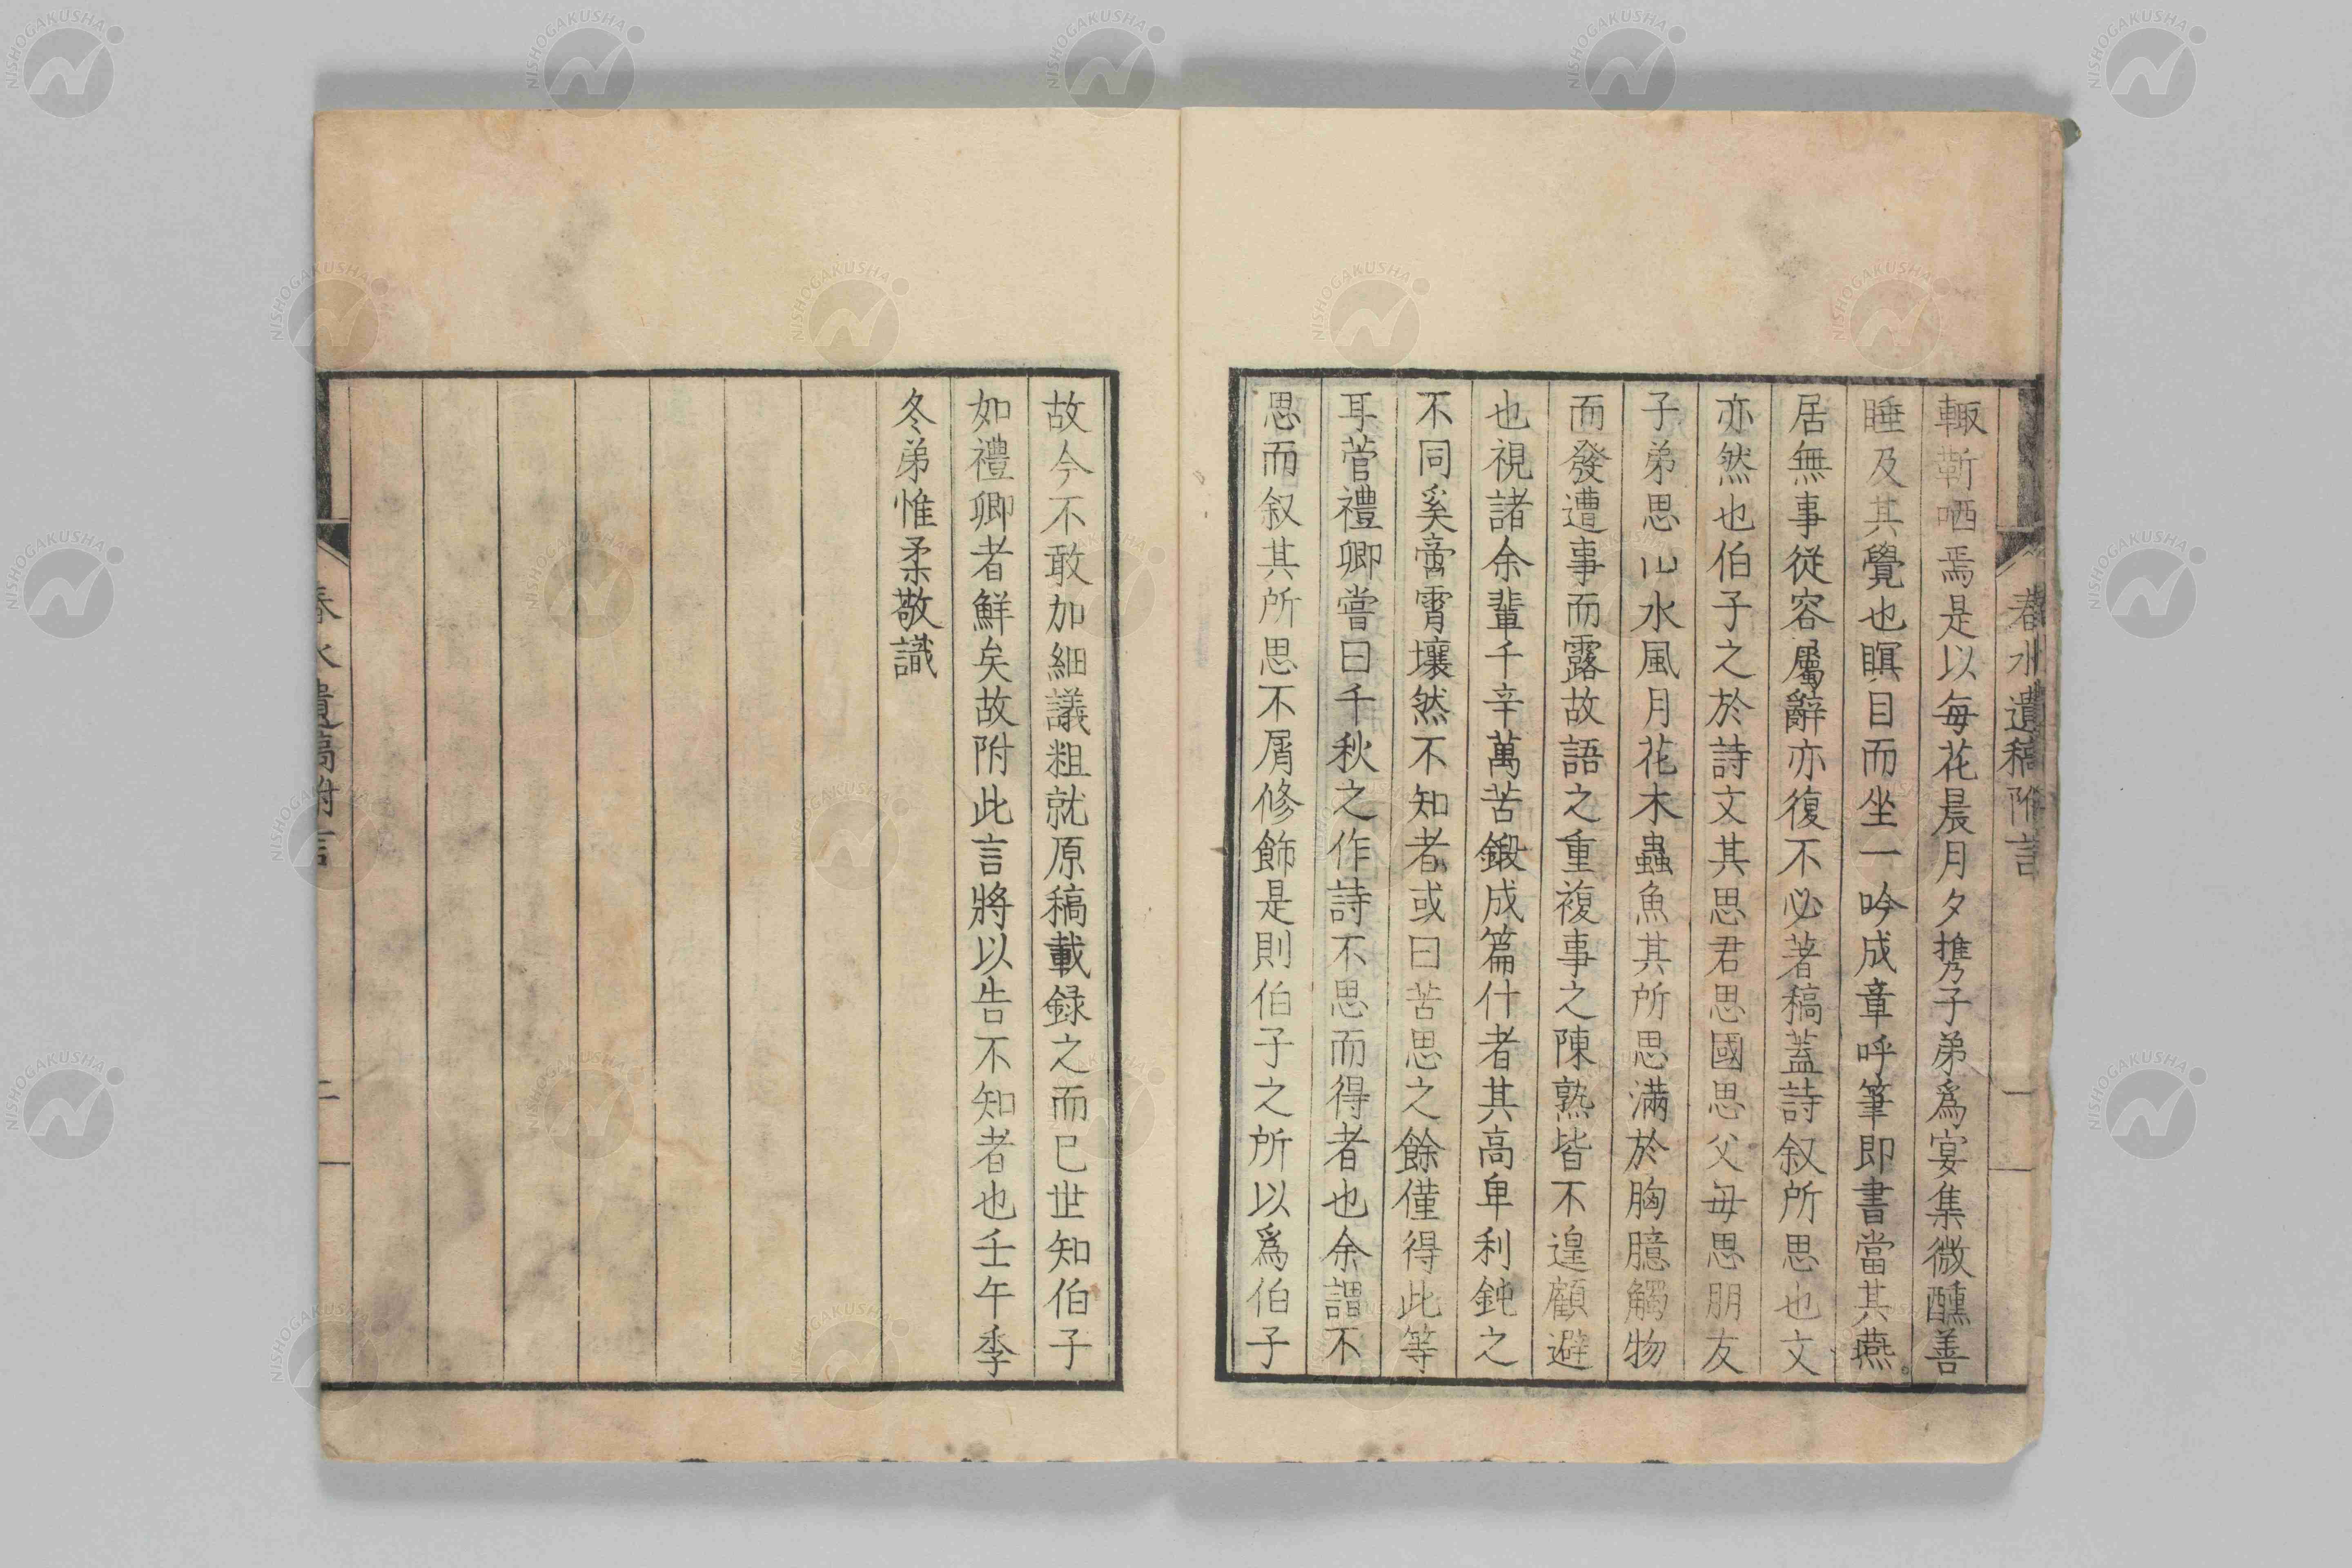 春水遺稿附言
一
輙鼾哂焉是以毎花晨月夕携子弟爲宴集微醺善
睡及其覺也瞑目而坐一吟成章呼筆即書當其燕
居無事從容屬辭亦復不必著稿蓋詩叙所思也文
亦然也伯子之於詩文其思君思國思父毋思朋友
子弟思山水風月花木蟲魚其所思滿於胸臆觸物
而發遭事而露故語之重複事之陳熟皆不遑顧避
也視諸余輩千辛萬苦鍛成篇什者其高卑利鈍之
不同奚啻霄壤然不知者或曰苦思之餘僅得此等
耳菅禮卿嘗曰千秋之作詩不思而得者也余謂不
思而叙其所思不屑修飾是則伯子之所以爲伯子
故今不敢加細議粗就原稿載録之而已世知伯子
如禮卿者鮮矣故附此言將以告不知者也壬午季
冬弟惟柔敬識
春水遺稿附言
二
NISHOGAKUSHA